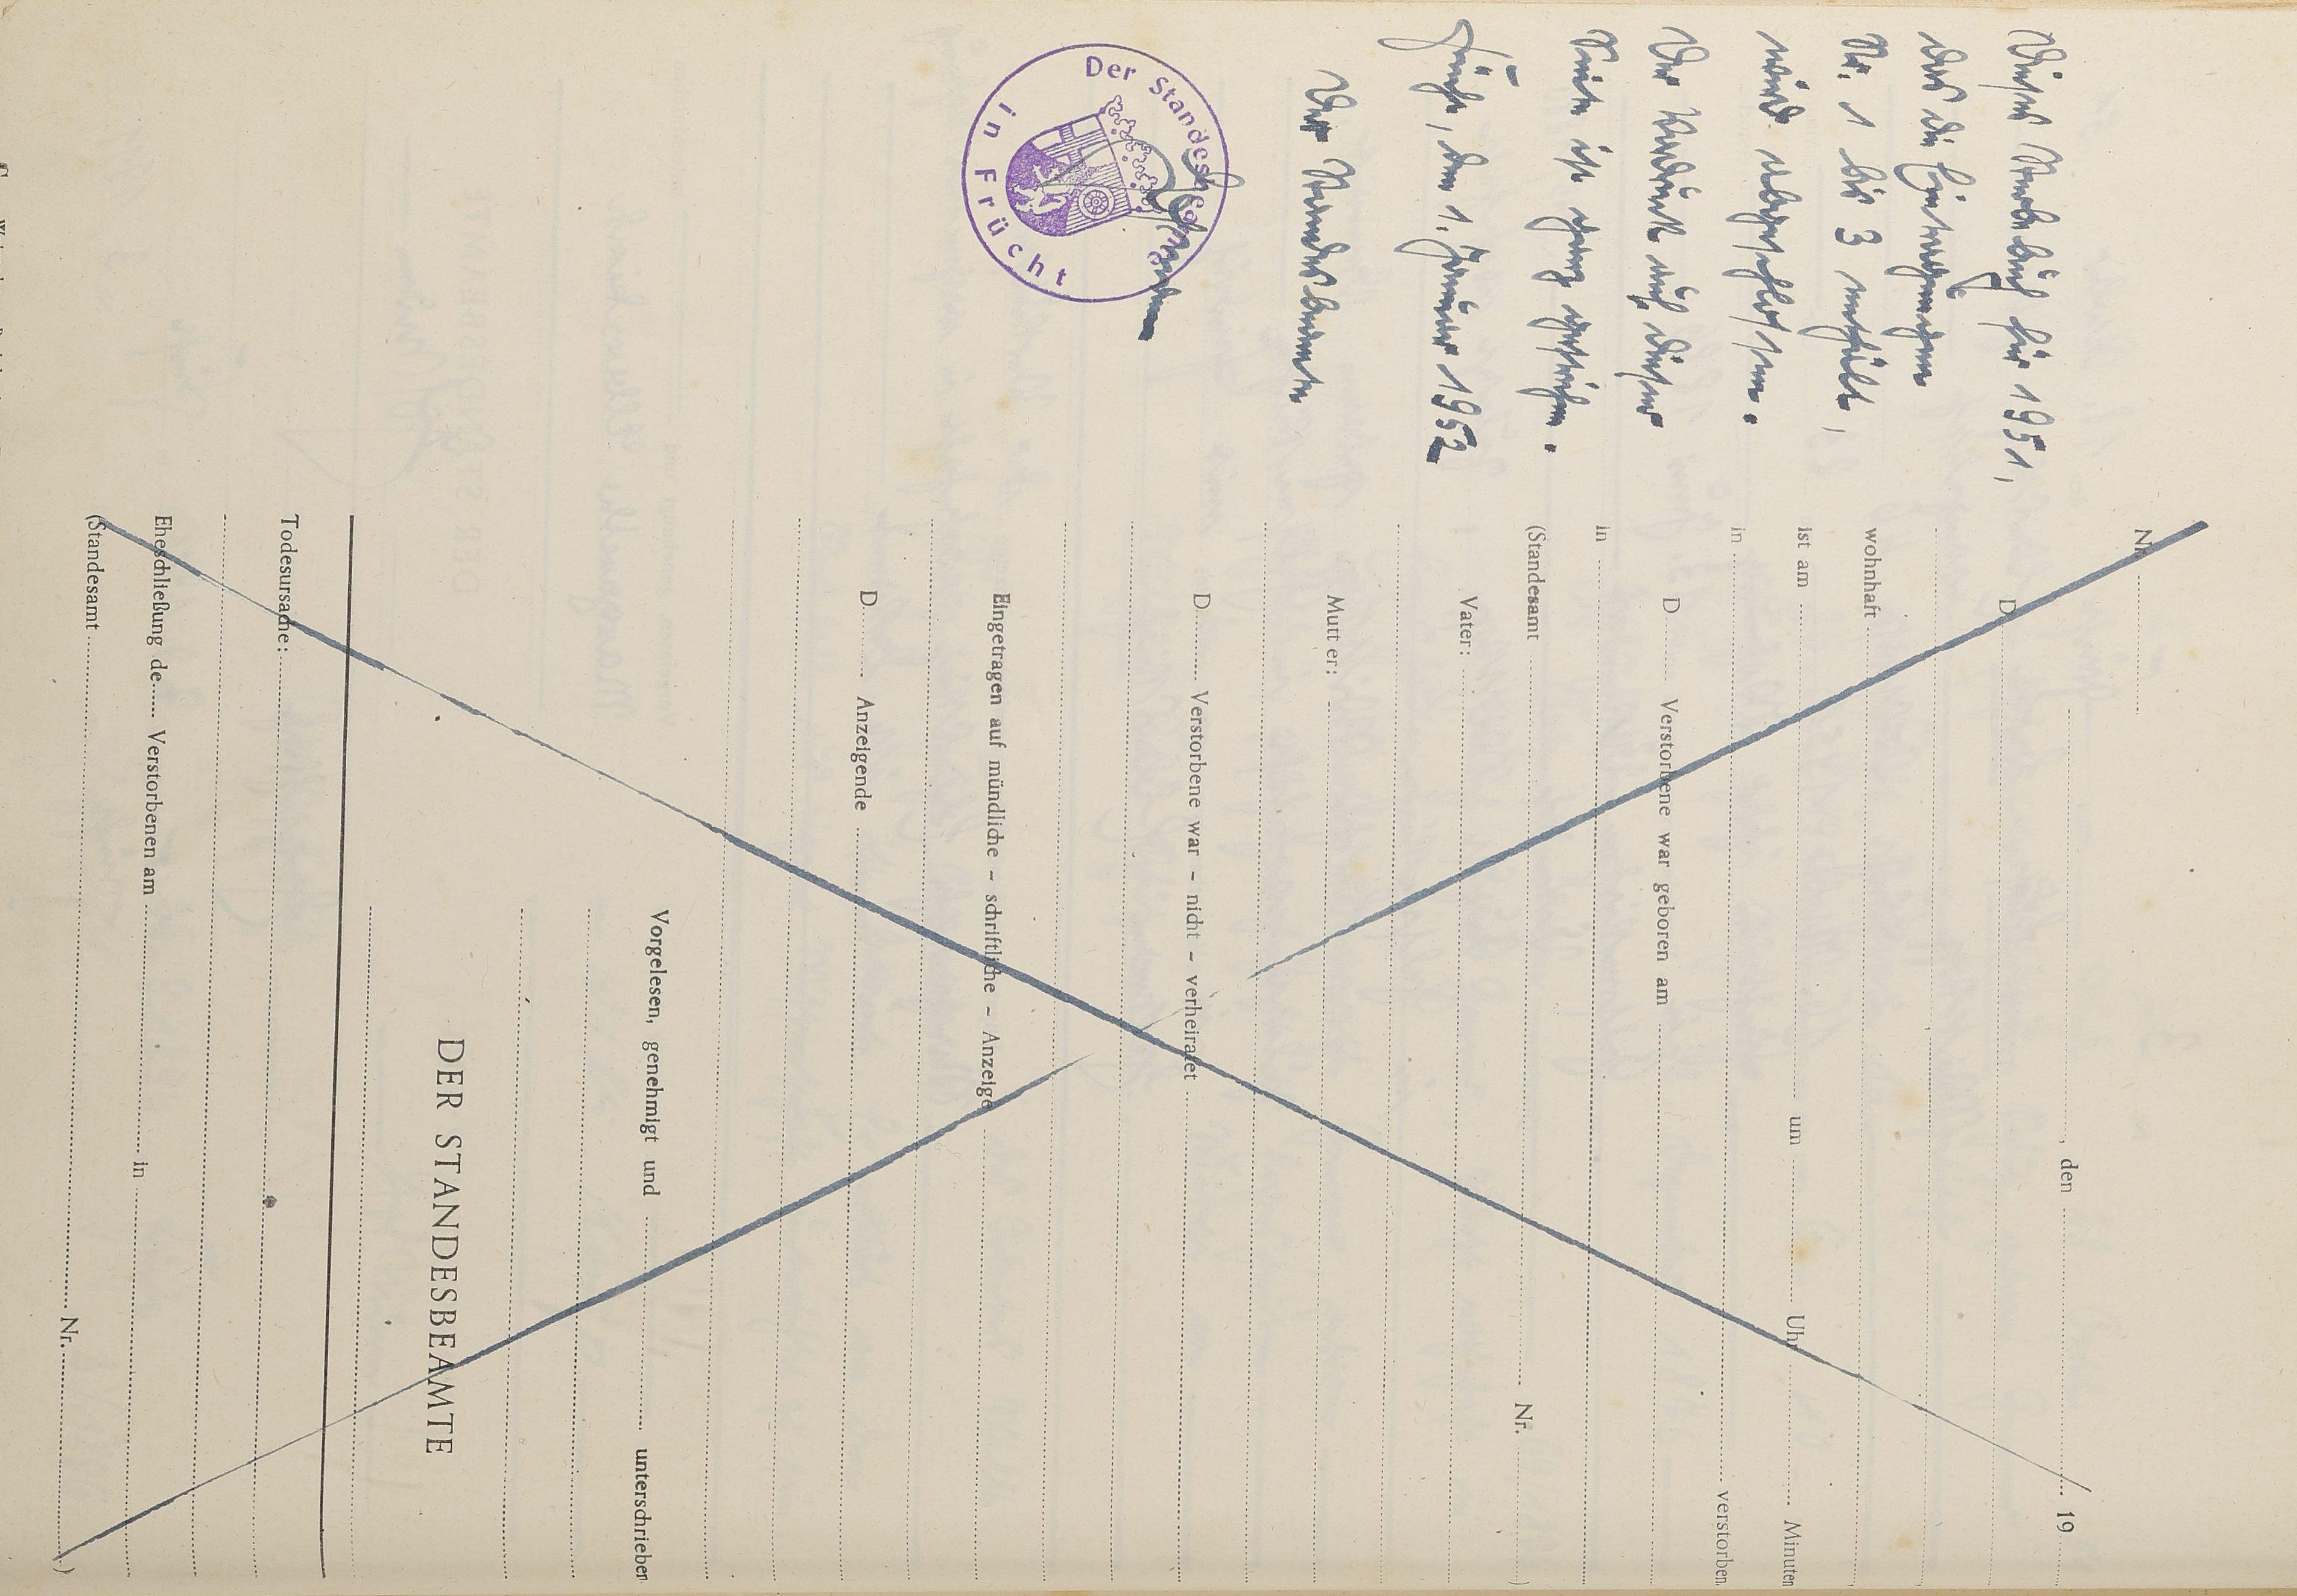 Dieses Sterbebuch für 1951,
das die Eintragungen
Nr. 1 bis 3 enthält,
wird abgeschlossen.
Der Vordruck auf dieser
Seite ist ganz gestrichen.
Frücht, den 1. Januar 1952
Der Standesbeamte
Der Standesbeamte
in Frücht
Nr.
, den 19
D
wohnhaft
ist am um Uhr Minuten
in verstorben.
D Verstorbene war geboren am
in
(Standesamt Nr. )
Vater:
Mutter:
D Verstorbene war – nicht – verheiratet
Eingetragen auf mündliche – schriftliche – Anzeige
D Anzeigende
Vorgelesen, genehmigt und unterschrieben
DER STANDESBEAMTE
Todesursache:
Eheschließung de Verstorbenen am in
(Standesamt Nr. )